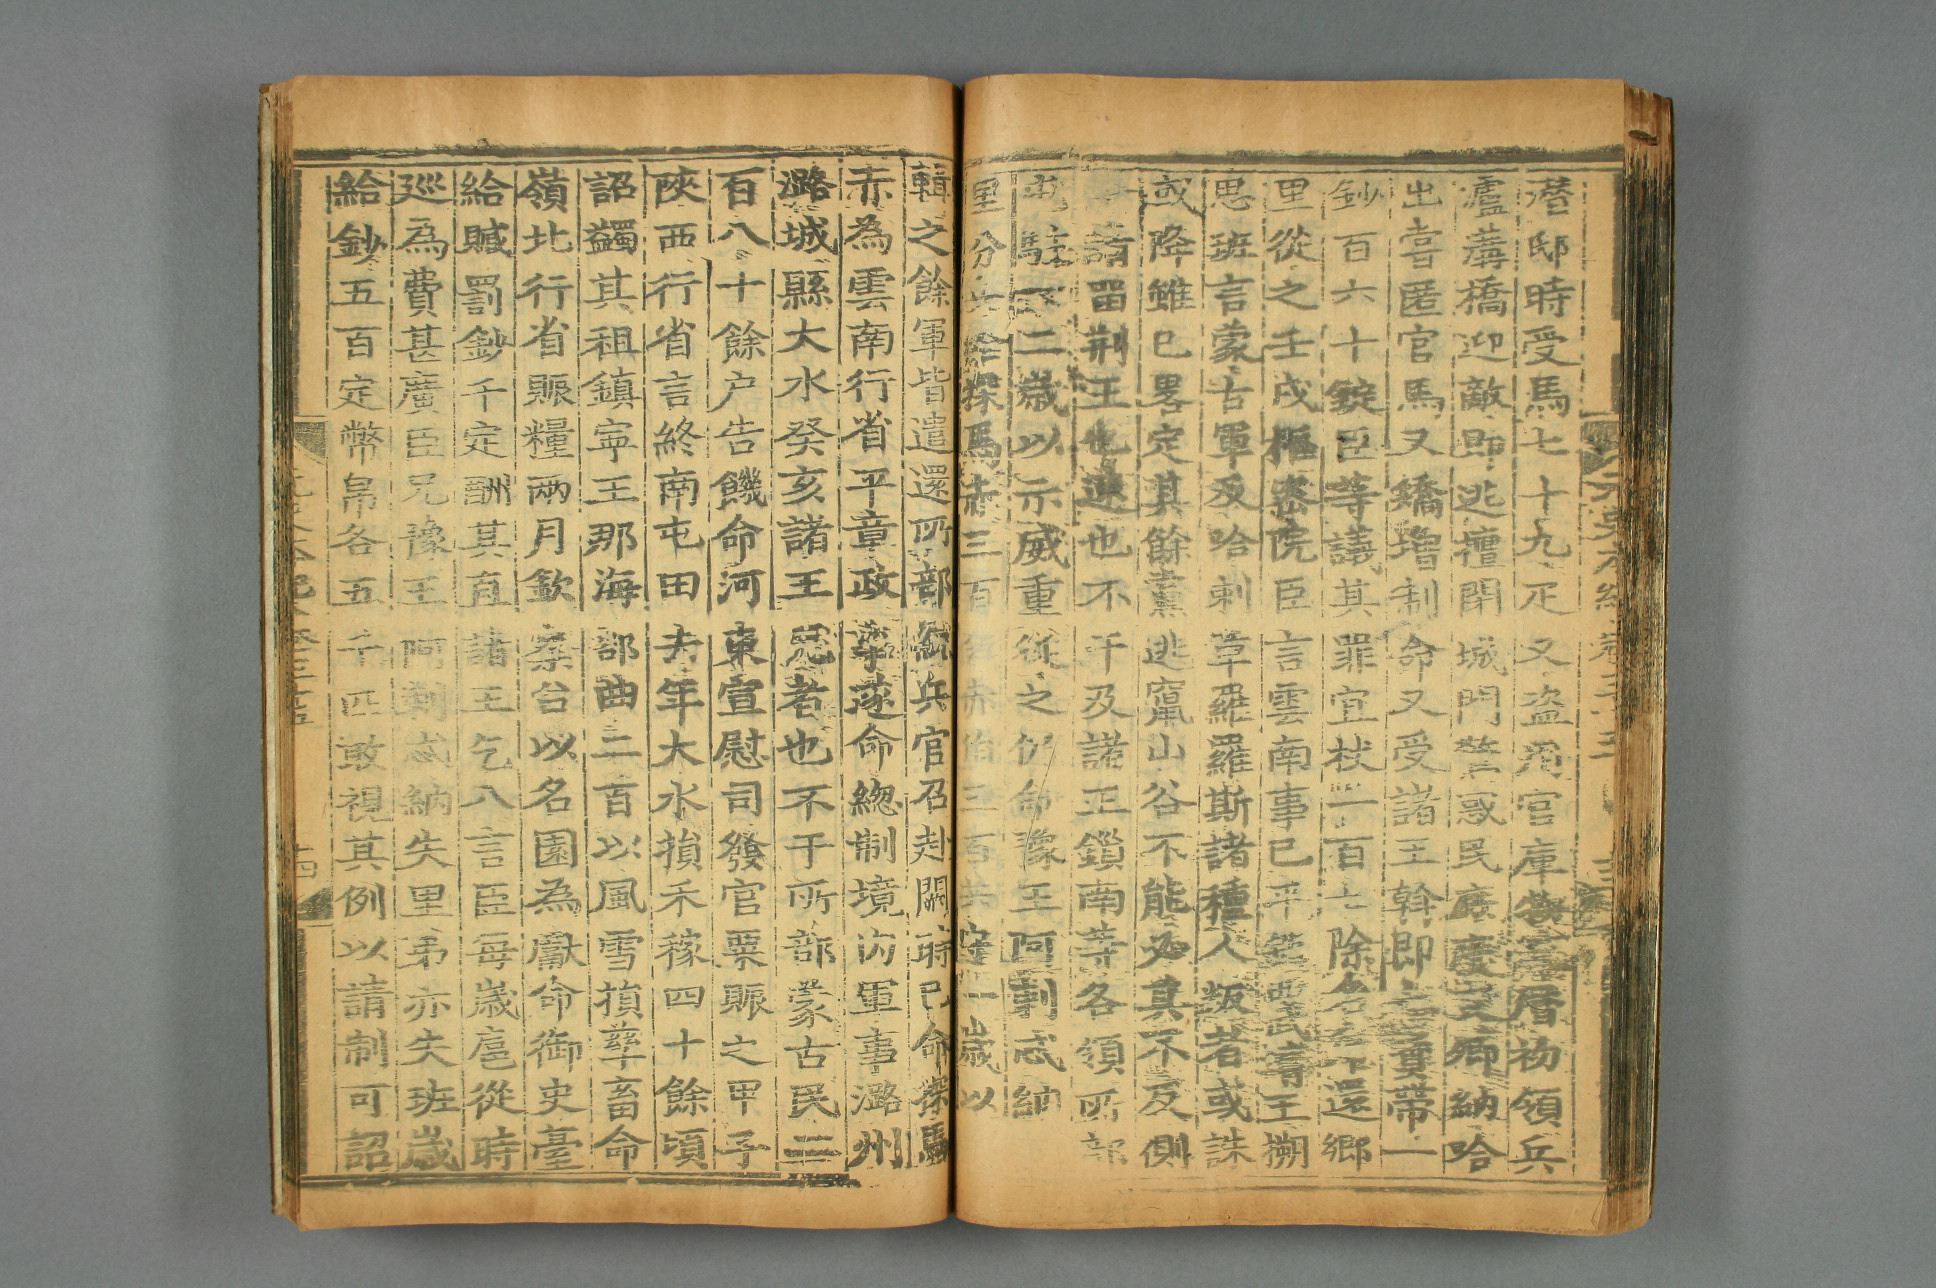 潜邸時受馬七十九疋又盜用官庫物宣曆初領兵
瀘溝橋迎敵即逃擅閉城門驚惑民廣慶受卿納哈
出害匿官馬又矯增制命又受諸王斡即之寶帶一
鈔百六十錠臣等議其罪宜杖一百七除名不還鄉
里從之壬戌樞密院臣言雲南事已平鎮西武靖王搠
思班言蒙古軍及哈剌章羅羅斯諸種人叛者或誅
或降雖已畧定其餘黨逃竄山谷不能必其不反側
請留荆王也速也不干及諸王鎖南等各領所部
屯駐一二歲以示威重從之仍命豫王阿剌忒納
里分兵給探馬赤三百乞赤伯三百共守一歲以
輯之餘軍皆遣還所部統兵官召赴闕時已命探馬
赤為雲南行省平章政事遂命總制境内軍事潞州
潞城縣大水癸亥諸王兄者也不干所部蒙古民三
百八十餘户告饑命河東宣慰司發官粟賑之甲子
陜西行省言終南屯田去年大水損禾稼四十餘頃
詔蠲其租鎮寧王那海部曲二百以風雪損孳畜命
嶺北行省賑糧兩月欽察台以名園為獻命御史臺
給贓罰鈔千定酬其直諸王乞八言臣每歲扈從時
廵為費甚廣臣兄豫王阿剌忒納失里弟亦失班歲
給鈔五百定幣帛各五千匹敢視其例以請制可詔
元史本紀卷三十五
十四